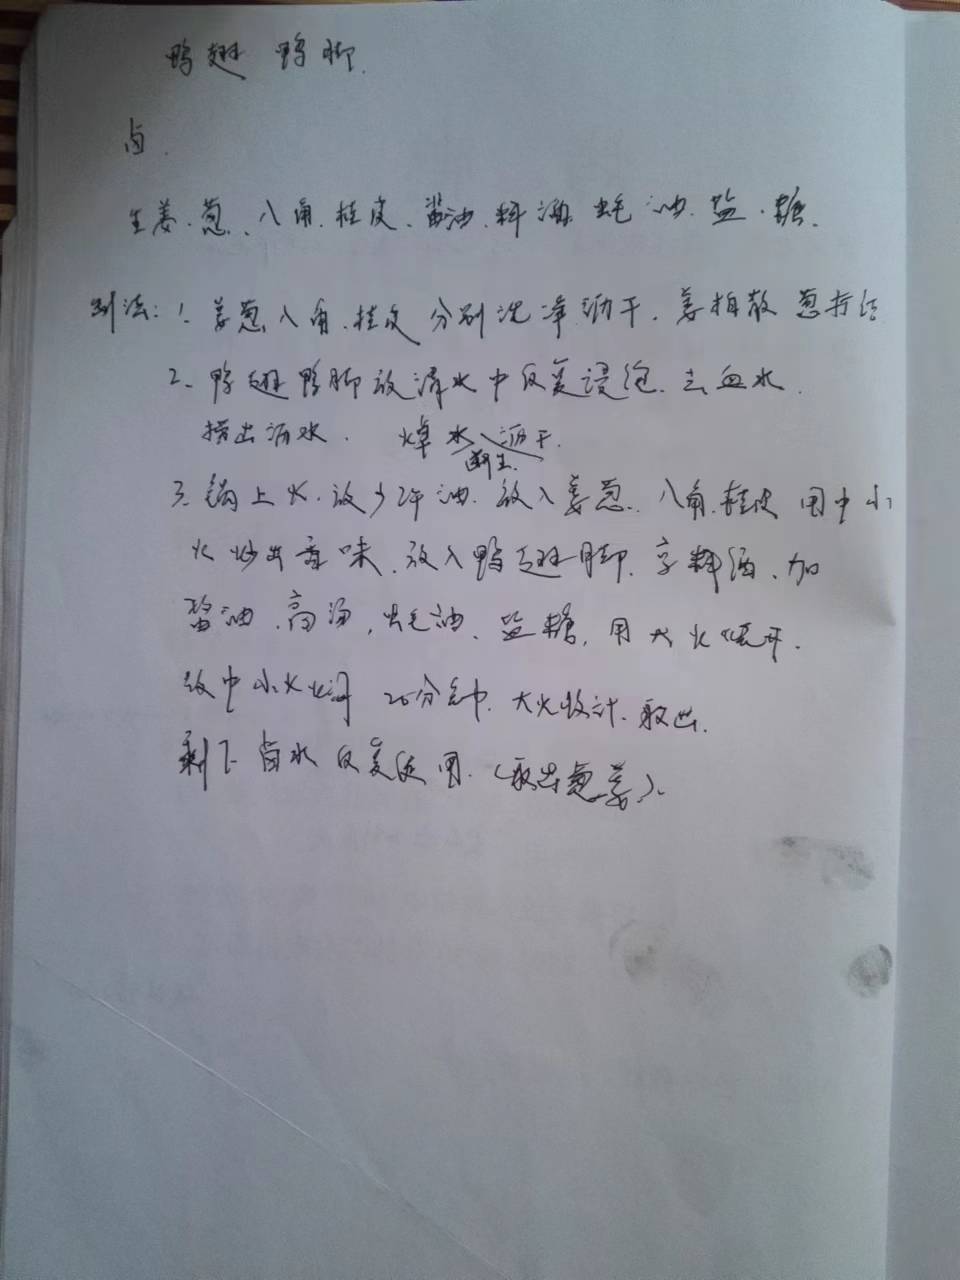 鸭翅 鸭脚.
卤.
生姜.葱、八角.桂皮、酱油.料酒.蚝油.盐.糖.
制法:1.姜葱八角.桂皮分别洗净沥干.姜拍散葱打结
2、鸭翅鸭脚放清水中反复浸泡.去血水.
捞出沥水. 焯水沥干.
断生.
3.锅上火.放少许油.放入姜葱.八角.桂皮用中小
火炒出香味.放入鸭翅脚.烹料酒、加
酱油.高汤,蚝油、盐糖,用大火烧开.
改中小火焖20分钟.大火收汁.取出.
剩下卤水反复使用.(取出葱姜).